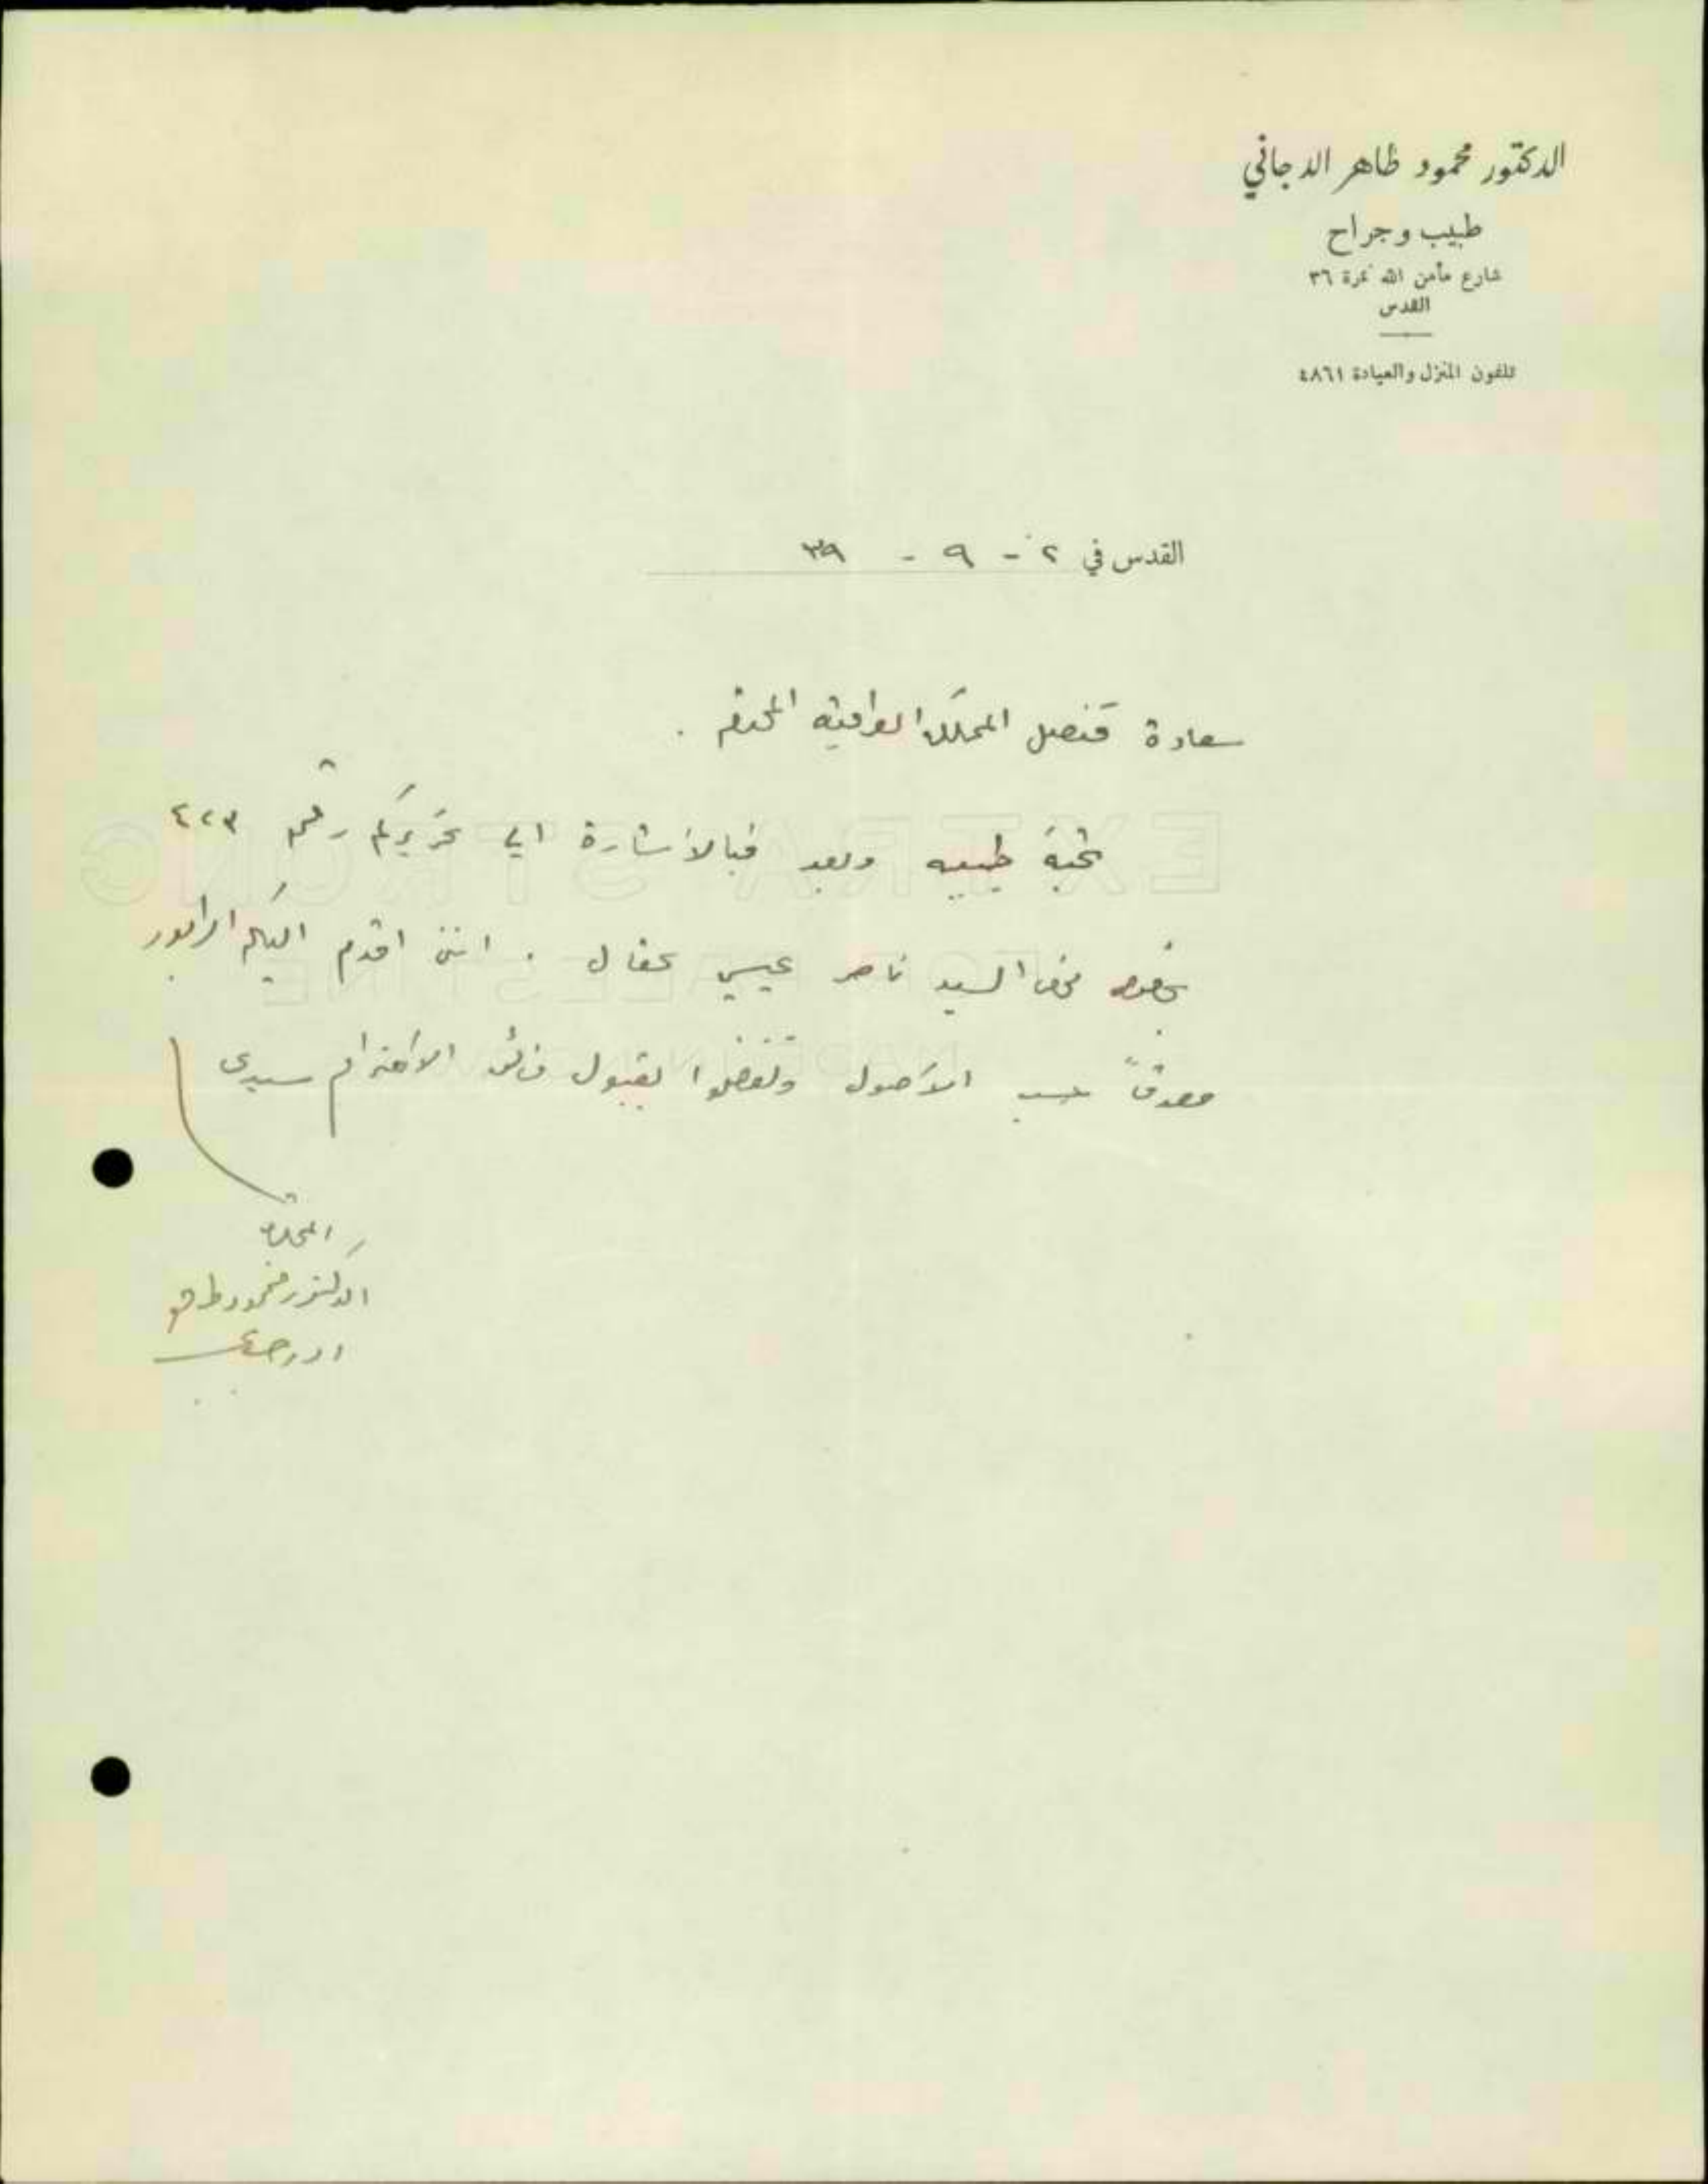 الدكتور محمود طاهر الدجاني
طبيب وجراح
شارع مأمن الله نمرة ٣٦
القدس
تلفون المنزل والعيادة ٤٨٦١
القدس في ٢ - ٩ - ٣٩
سعادة قنصل المملكة العراقية المحترم .
تحية طيبه وبعد فبالاشارة الى تحريركم رقم ٤٢٣
بخصوص فحص السيد ناصر عيسى عقال . انني اقدم اليكم الرابور
مصدقاً حسب الأصول وتفضلوا بقبول فائق الاحترام سيدي
المخلص
الدكتور محمود طاهر
الدجاني
EXTRA STRONG